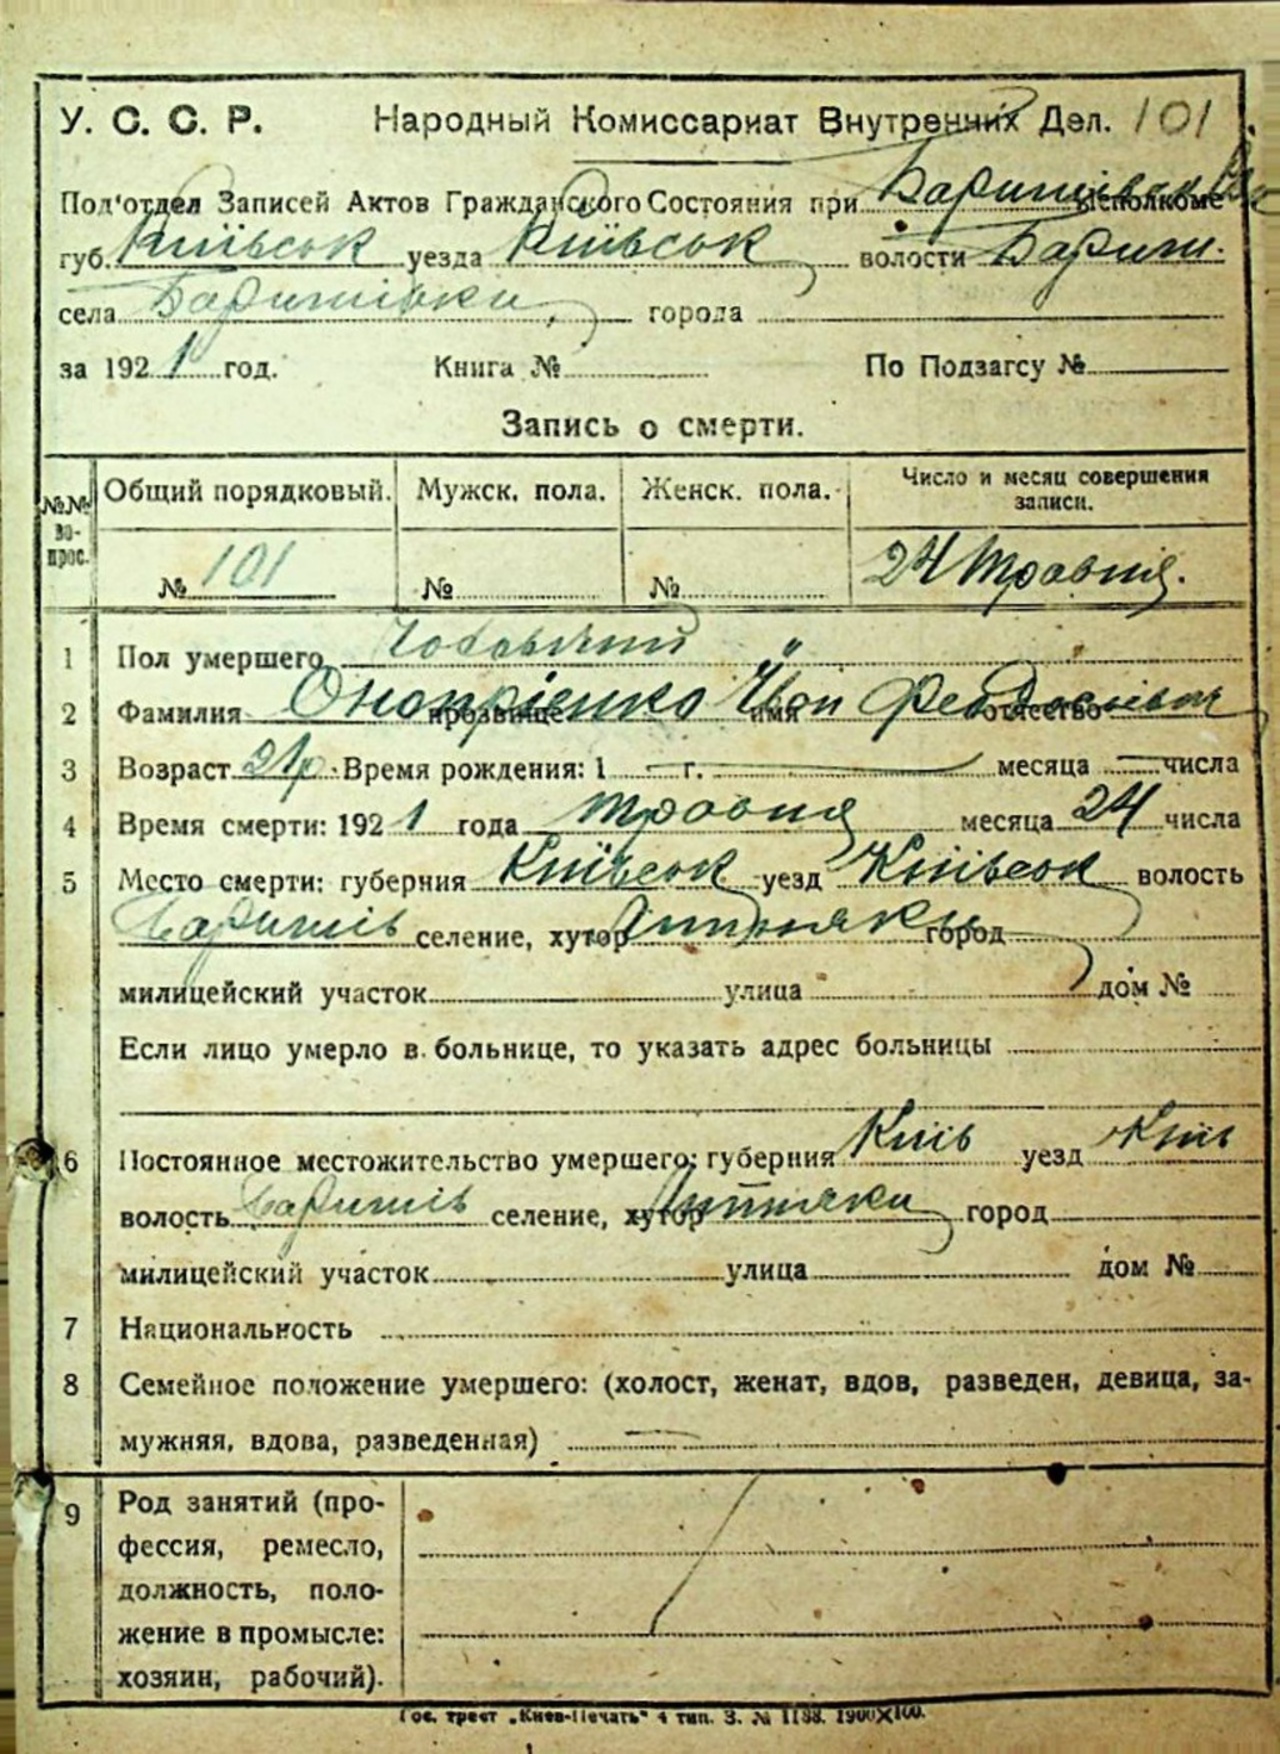 У. С. С. Р. Народный Комиссариат Внутренних Дел. 101
Под'отдел Записей Актов Гражданского Состояния при Баришівськ Исполкоме
губ. Київськ уезда Київськ волости Бариш.
села Баришівки города
за 1921 год. Книга № По Подзагсу №
Запись о смерти.
№№ вопрос. Общий порядковый. Мужск. пола. Женск. пола. Число и месяц совершения записи.
№ 101 № № 24 Травня.
1 Пол умершего
2 Фамилия Онопрієнко прозвище Іван имя Феодосієвич отчество
3 Возраст 21р. Время рождения: 1 г. месяца числа
4 Время смерти: 1921 года травня месяца 24 числа
5 Место смерти: губерния Київськ уезд Київськ волость
Баришів селение, хутор город
милицейский участок улица дом №
Если лицо умерло в больнице, то указать адрес больницы
6 Постоянное местожительство умершего: губерния Київ уезд Київ
волость Баришів селение, хутор город
милицейский участок улица дом №
7 Национальность
8 Семейное положение умершего: (холост, женат, вдов, разведен, девица, за-
мужняя, вдова, разведенная)
9 Род занятий (про-
фессия, ремесло,
должность, поло-
жение в промысле:
хозяин, рабочий).
Гос. трест „Киев-Печать" 4 тип. З. № 1188. 1900Х100.